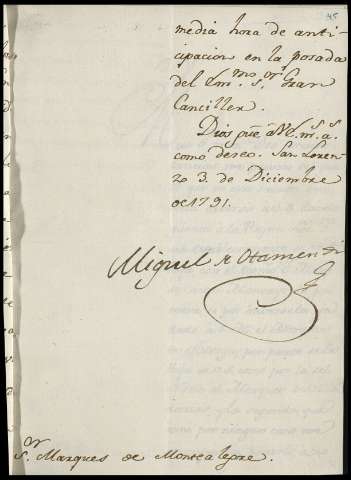 45
media hora de anti-
cipacion en la posada
del Em.mo S.or Gran
Canciller.
Dios gue à V.S. m.s a.s
como deseo. San Loren-
zo 3. de Diciembre
de 1791.
Miguel de Otamendi
S.or Marques de Montealegre.